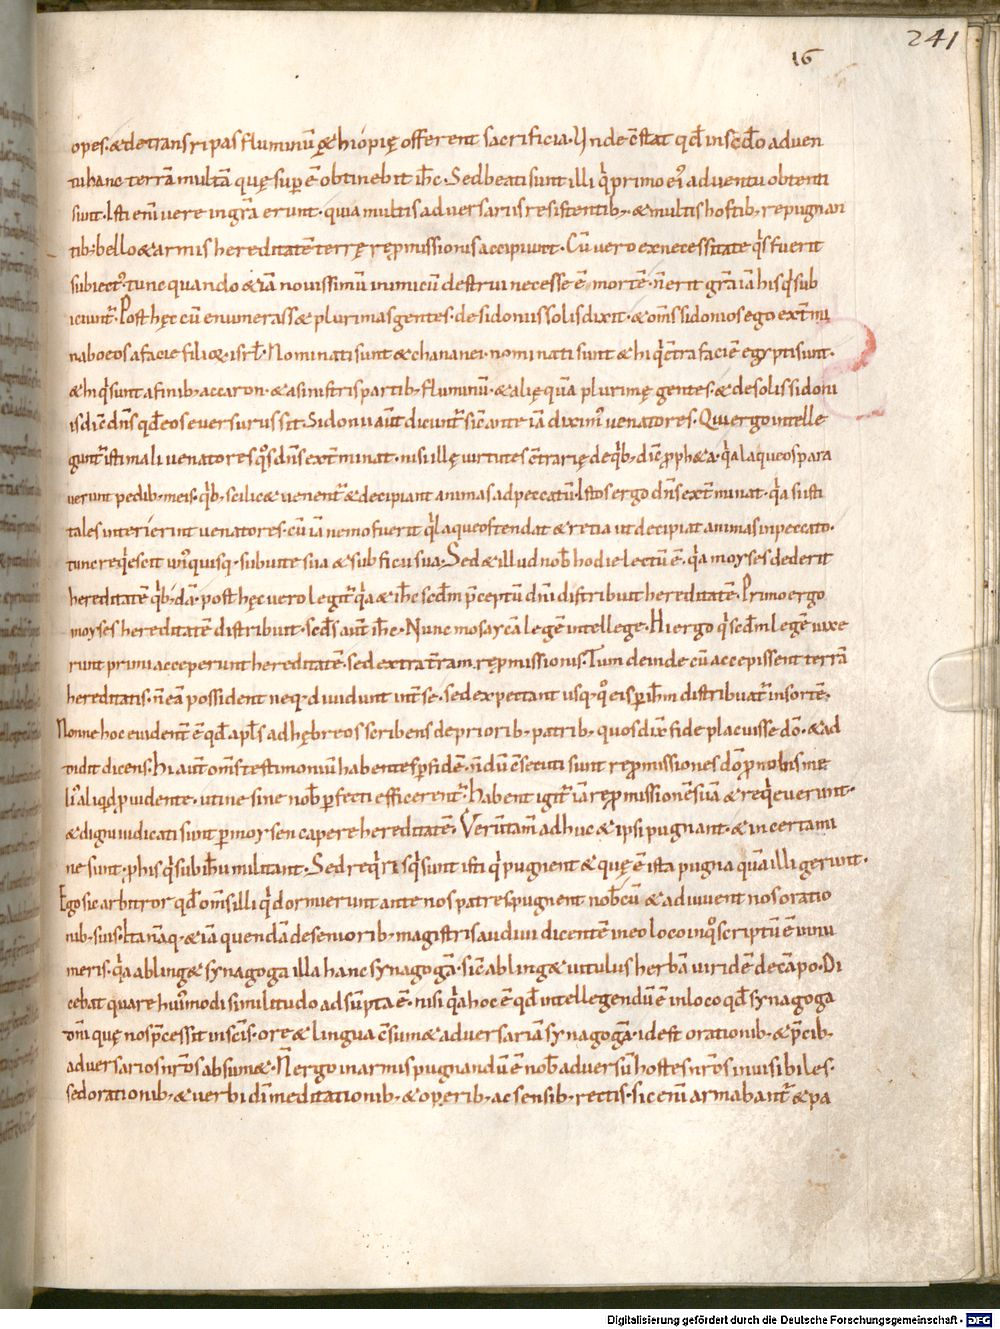 241
16
opes. & de trans ripas fluminū ę&hiopię offerent sacrificia. Unde c̄stat qđ in scđo adven
tu hanc terrā multā quę sup̄ ē obtinebit ih̄c. Sed beati sunt illi q̇ primo ei᾽ adventu obtenti
sunt. Isti eni᷒ vere in grā erunt. quia multis adversariis resistentib; & multis hostib; repugnan
tib; bello & armis hereditatē terrę rep̄missionis accipiunt. Cū vero ex necessitate q̇s fuerit
subiect᾽. tunc quando & iā novissimū inimicū destrui necesse ē mortē. n̄ erit grā iā his q̇ sub
iciunt᷒. Post hęc cū enumerass& plurimas gentes. de sidoniis solis dixit. & oms̄ sidonios ego ext᷒mi
nabo eos a facie filioꝝ isrł. Nominati sunt & chananei. nominati sunt & hi q̇ c̄tra faciē egypti sunt.
& hi q̇ sunt a finib; accaron. & a sinistris partib; fluminū. & alię quā plurimę gentes. & de solis sidoni
is dic̄ dn̄s qđ eos eversurus sit. Sidonii aūt dicunt᷒ sic̄ ante iā dixim᾽ venatores. Qui ergo intelle
gunt᷒ isti mali venatores q᷒s dn̄s ext᷒minat. nisi illę virtutes c̄trarię de q̇b; dic̄ ꝓph&a. q̇a laqueos para
verunt pedib; meis. q̇b; scilic& venent᷒ & decipiant animas ad peccatū. Istos ergo dn̄s ext᷒minat. q̇a si isti
tales interierint venatores. cū iā nemo fuerit q̇ laqueos tendat & retia ut decipiat animas in peccato.
tunc req̇escit un᾽quisq; sub vite sua & sub ficu sua. Sed & illud nob̄ hodie lectū ē. q̇a moyses dederit
hereditatē q̇b; dā. post hęc vero legit᷒ q̇a & ih̄c scđm p̄ceptū dn̄i distribuit hereditatē. Primo ergo
moyses hereditatē distribuit. scđs aūt ih̄c. Nunc mosaycā legē intellege. Hi ergo q̇ scđm legē vixe
runt primi acceperunt hereditatē. sed extra t᷒ram. rep̄missionis. Tum deinde cū accepissent terrā
hereditatis. n̄ eā possident neq; dividunt int᷒ se. sed expectant usq; q᷒ eis p̄ ih̄m distribuat᷒ in sortē.
Nonne hoc evident᷒ ē qđ apłs ad hębreos scribens de priorib; patrib; quos dix̄ fide placuisse dō. & ad
didit dicens. Hi aūt oms̄ testimoniū habentes p̄ fidē. n̄dū c̄secuti sunt rep̄missiones dō ꝓ nobis me
li᾽ aliq̇d ꝓvidente. ut ne sine nob̄ perfecti efficerent᷒. Habent igit᷒ iā rep̄missionē suā & req̇everunt.
& digni iudicati sunt p̄ moysen capere hereditatē. Verūtam̄ adhuc & ipsi pugnant. & in certami
ne sunt. ꝓ his q̇ sub ih̄u militant. Sed req̇ris q̇ sunt isti q̇ pugnent & quę ē ista pugna quā illi gerunt.
Ego sic arbitror qđ oms̄ illi q̇ dormierunt ante nos patres pugnent nob̄cū & adiuvent nos oratio
nib; suis. Ita nāq; & iā quendā de seniorib; magistris audivi dicentē in eo loco in q᷒ scriptū ē in nu
meris. q̇a abling& synagoga illa hanc synagogā. sic̄ abling& vitulus herbā viridē de cāpo. Di
cebat quare hui᾽modi similitudo adsūpta ē. nisi q̇a hoc ē qđ intellegendū ē in loco qđ synagoga
dn̄i quę nos p̄cessit in scīs. ore & lingua c̄sum& adversariā synagogā. id est orationib; & p̄cib;
adversarios nr̄os absum&. N̄ ergo in armis pugnandū ē nob̄ adversū hostes nr̄os invisibiles.
sed orationib; & verbi dī meditationib; & operib; ac sensib; rectis. sic eni᷒ armabant᷒ & pa
Digitalisierung gefördert durch die Deutsche Forschungsgemeinschaft - DFG